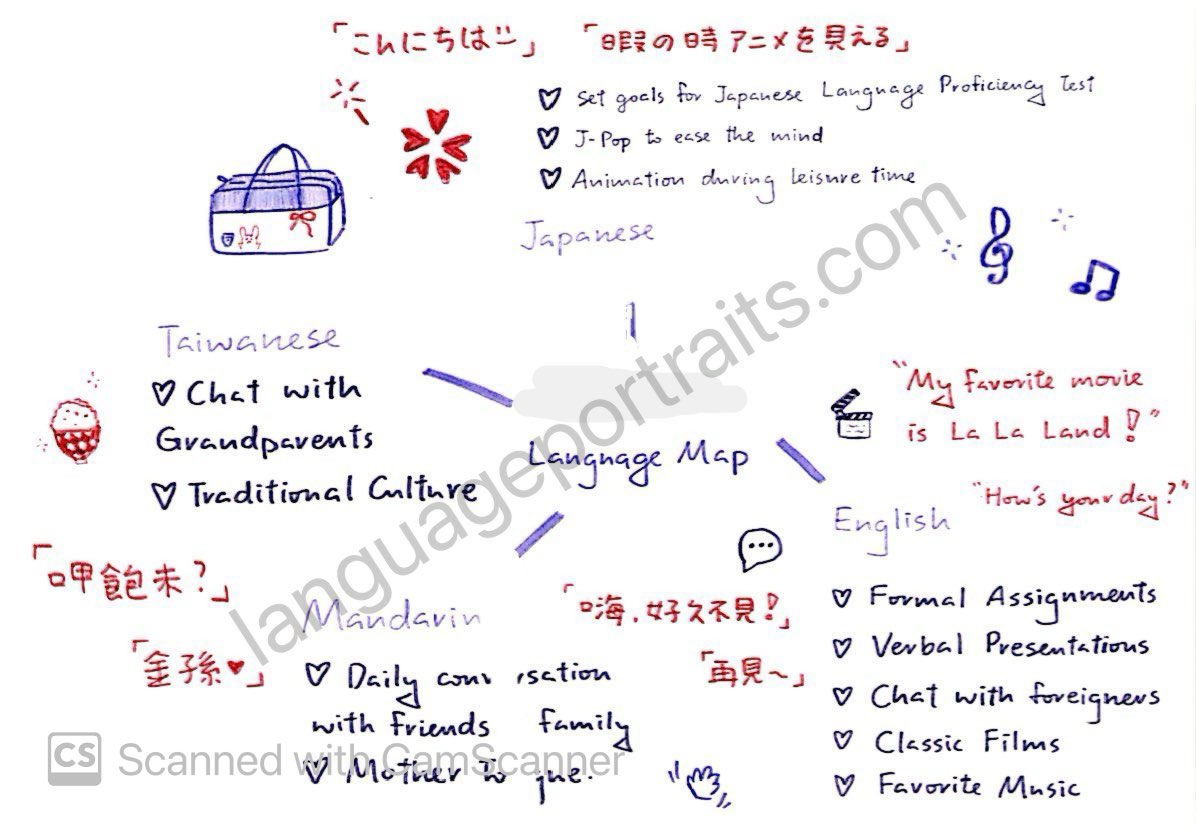 「こんにちは」
「暇の時アニメを見える」
Set goals for Japanese Language Proficiency Test
J-Pop to ease the mind
Animation during leisure time
Japanese
Taiwanese
Chat with
Grandparents
Traditional Culture
「呷飽未?」
「金孫♥」
Language Map
"My favorite movie
is La La Land!"
"How's your day?"
English
Formal Assignments
Verbal Presentations
Chat with foreigners
Classic Films
Favorite Music
Mandarin
「嗨,好久不見!」
「再見~」
Daily conv rsation
with friends family
Mother to gue.
CS Scanned with CamScanner
languageportraits.com